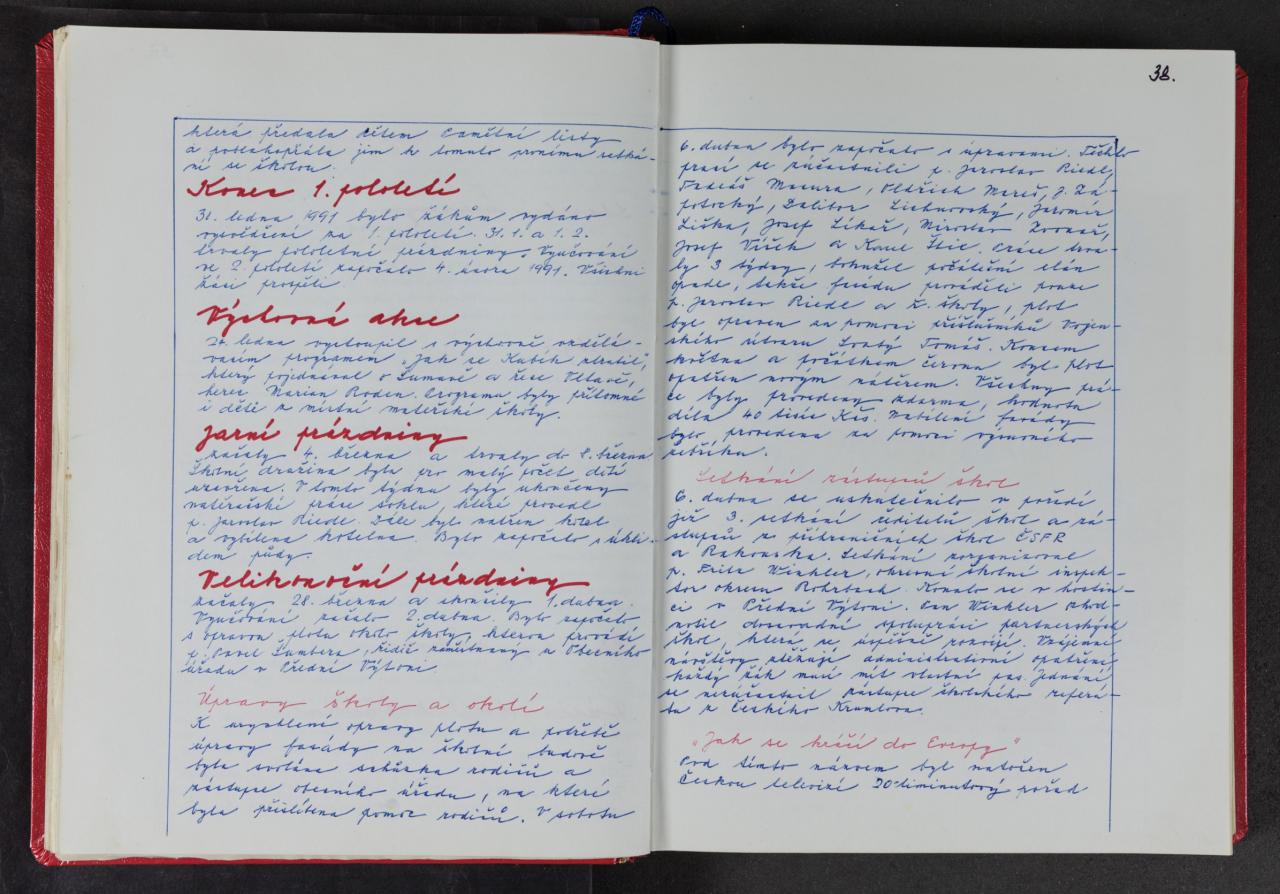 která předala dětem pamětní listy
a poblahopřála jim k tomuto prvnímu setká-
ní se školou.
Konec 1. pololetí
31. ledna 1991 bylo žákům vydáno
vysvědčení za 1. pololetí. 31. 1. a 1. 2.
trvaly pololetní prázdniny. Vyučování
ve 2. pololetí započalo 4. února 1991. Všichni
žáci prospěli.
Výchovná akce
ledna vystoupil s výchovně vzdělá-
vacím programem "Jak se Kubík ztratil",
který pojednával o Šumavě a řece Vltavě,
herec Marian Roden. Programu byly přítomné
i děti z místní mateřské školy.
Jarní prázdniny
začaly 4. března a trvaly do 8. března
Školní družina byla pro malý počet dětí
uzavřena. V tomto týdnu byly ukončeny
natěračské práce soklu, které provedl
p. Jaroslav Riedl. Dále byl natřen kotel
a vybílena kotelna. Bylo započato s úkli-
dem půdy.
Velikonoční prázdniny
začaly 28. března a skončily 1. dubna.
Vyučování začalo 2. dubna. Bylo započato
s opravou plotu okolo školy, kterou provádí
p. Pavel Šumbera, řidič zaměstnaný u Obecního
úřadu v Přední Výtoni.
Úpravy školy a okolí
K urychlení opravy plotu a potřebě
úpravy fasády na školní budově
byla svolána schůzka rodičů a
zástupce obecního úřadu, na které
byla přislíbena pomoc rodičů. V sobotu
38.
6. dubna bylo započato s úpravami. Těchto
prací se zúčastnili p. Jaroslav Riedl,
Tadeáš Macura, Oldřich Mareš, J. Zá-
potocký, Dalibor Jaromír
Liška, Josef Lékař, Miroslav Zvonař,
Josef Víšek a Karel Práce trva-
ly 3 týdny, bohužel počáteční elán
opadl, takže fasádu prováděli pouze
p. Jaroslav Riedl a ř. školy, plot
byl opraven za pomoci příslušníků Vojen-
ského útvaru Svatý Tomáš. Koncem
května a počátkem června byl plot
opatřen novým nátěrem. Všechny prá-
ce byly provedeny zdarma, hodnota
díla 40 tisíc Kčs. Nabílení fasády
bylo provedeno za pomoci vysuvného
žebříku.
Setkání zástupců škol
6. dubna se uskutečnilo v pořadí
již 3. setkání ředitelů škol a zá-
stupců z příhraničních škol ČSFR
a Rakouska. Setkání zorganizoval
p. Fritz Winkler, okresní školní inspek-
tor okresu Rohrbach. Konalo se v hostin-
ci v Přední Výtoni. Pan Winkler zhod-
notil dosavadní spolupráci partnerských
škol, která se úspěšně rozvíjí. Vzájemné
návštěvy ztěžují administrativní opatření,
každý žák musí mít vlastní pas. Jednání
se nezúčastnil zástupce školského referá-
tu z Českého Krumlova.
"Jak se kráčí do Evropy"
Pod tímto názvem byl natočen
Českou televizí 20timinutový pořad